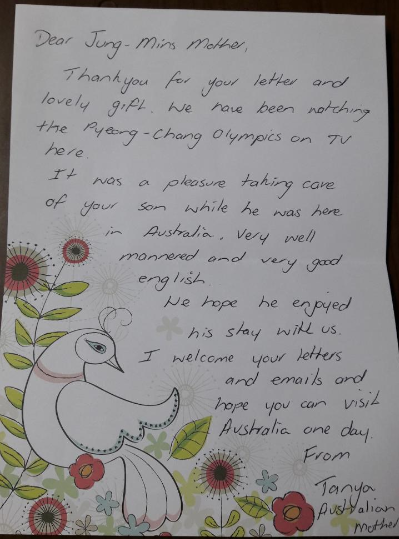 Dear Jung-Mins Mother,
Thankyou for your letter and
lovely gift. We have been watching
the Pyeong-Chang Olympics on TV
here.
It was a pleasure taking care
of your son while he was here
in Australia. Very well
mannered and very good
english.
We hope he enjoyed
his stay with us.
I welcome your letters
and emails and
hope you can visit
Australia one day.
From
Tanya
Australian
Mother